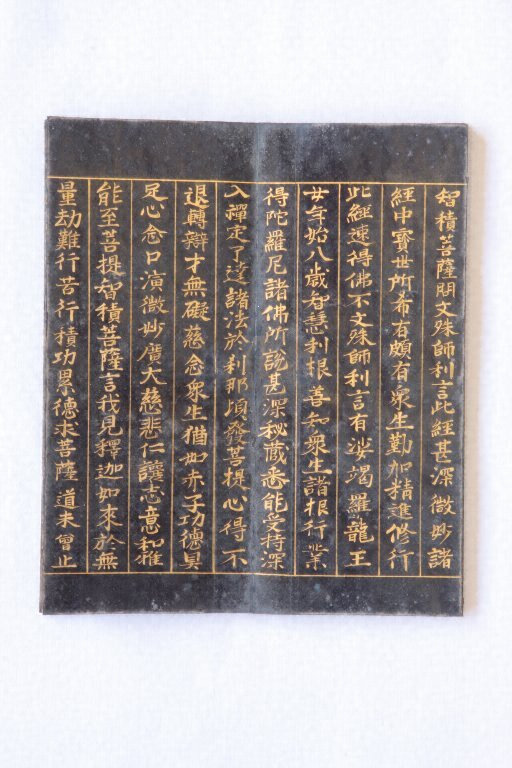 智積菩薩問文殊師利言此經甚深微妙諸
經中寶世所希有頗有衆生勤加精進修行
此經速得佛不文殊師利言有娑竭羅龍王
女年始八歲智慧利根善知衆生諸根行業
得陀羅尼諸佛所說甚深秘藏悉能受持深
入禪定了達諸法於刹那頃發菩提心得不
退轉辯才無礙慈念衆生猶如赤子功德具
足心念口演微妙廣大慈悲仁讓志意和雅
能至菩提智積菩薩言我見釋迦如來於無
量劫難行苦行積功累德求菩薩道未曾止